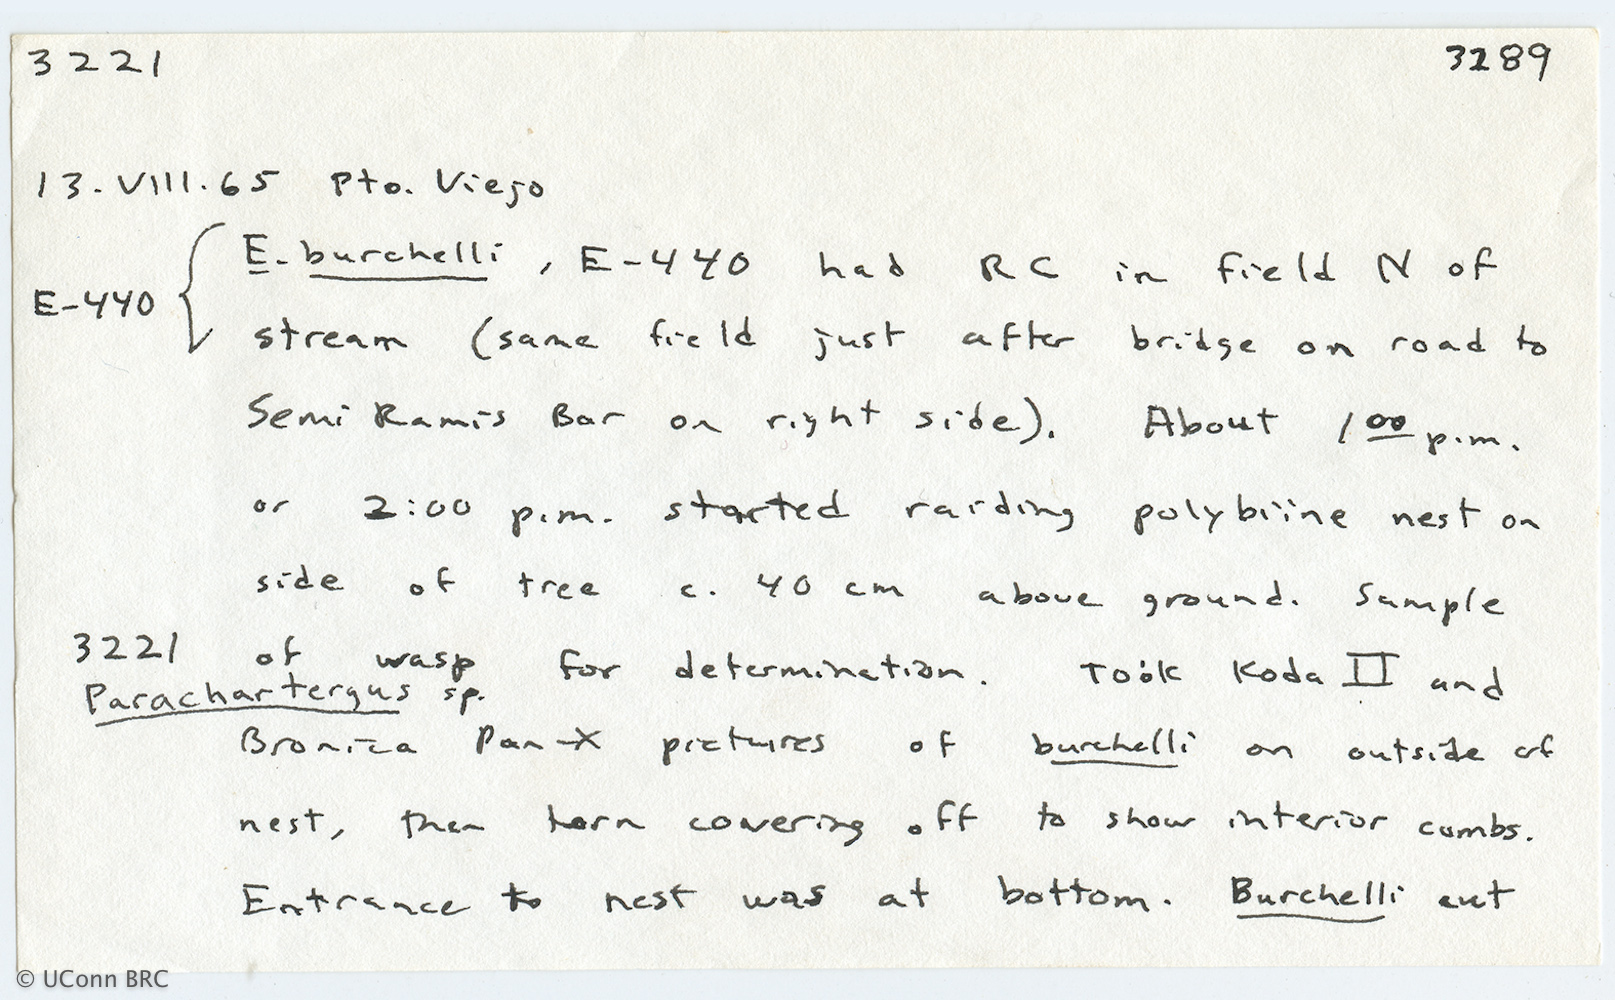 3221 3289
13.VIII.65 Pto. Viejo
E-440
E. burchelli, E-440 had RC in field N of
stream (same field just after bridge on road to
SemiRamis Bar on right side). About 1 00 p.m.
or 2:00 p.m. started raiding polybiine nest on
side of tree c. 40 cm above ground. Sample
3221 of wasp for determination. Took Koda II and
Parachartergus sp.
Bronica Pan-X pictures of burchelli on outside of
nest, then torn covering off to show interior combs.
Entrance to nest was at bottom. Burchelli cut
© UConn BRC